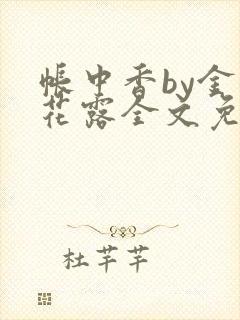 帐中香by金
花露全文免
杜芊芊